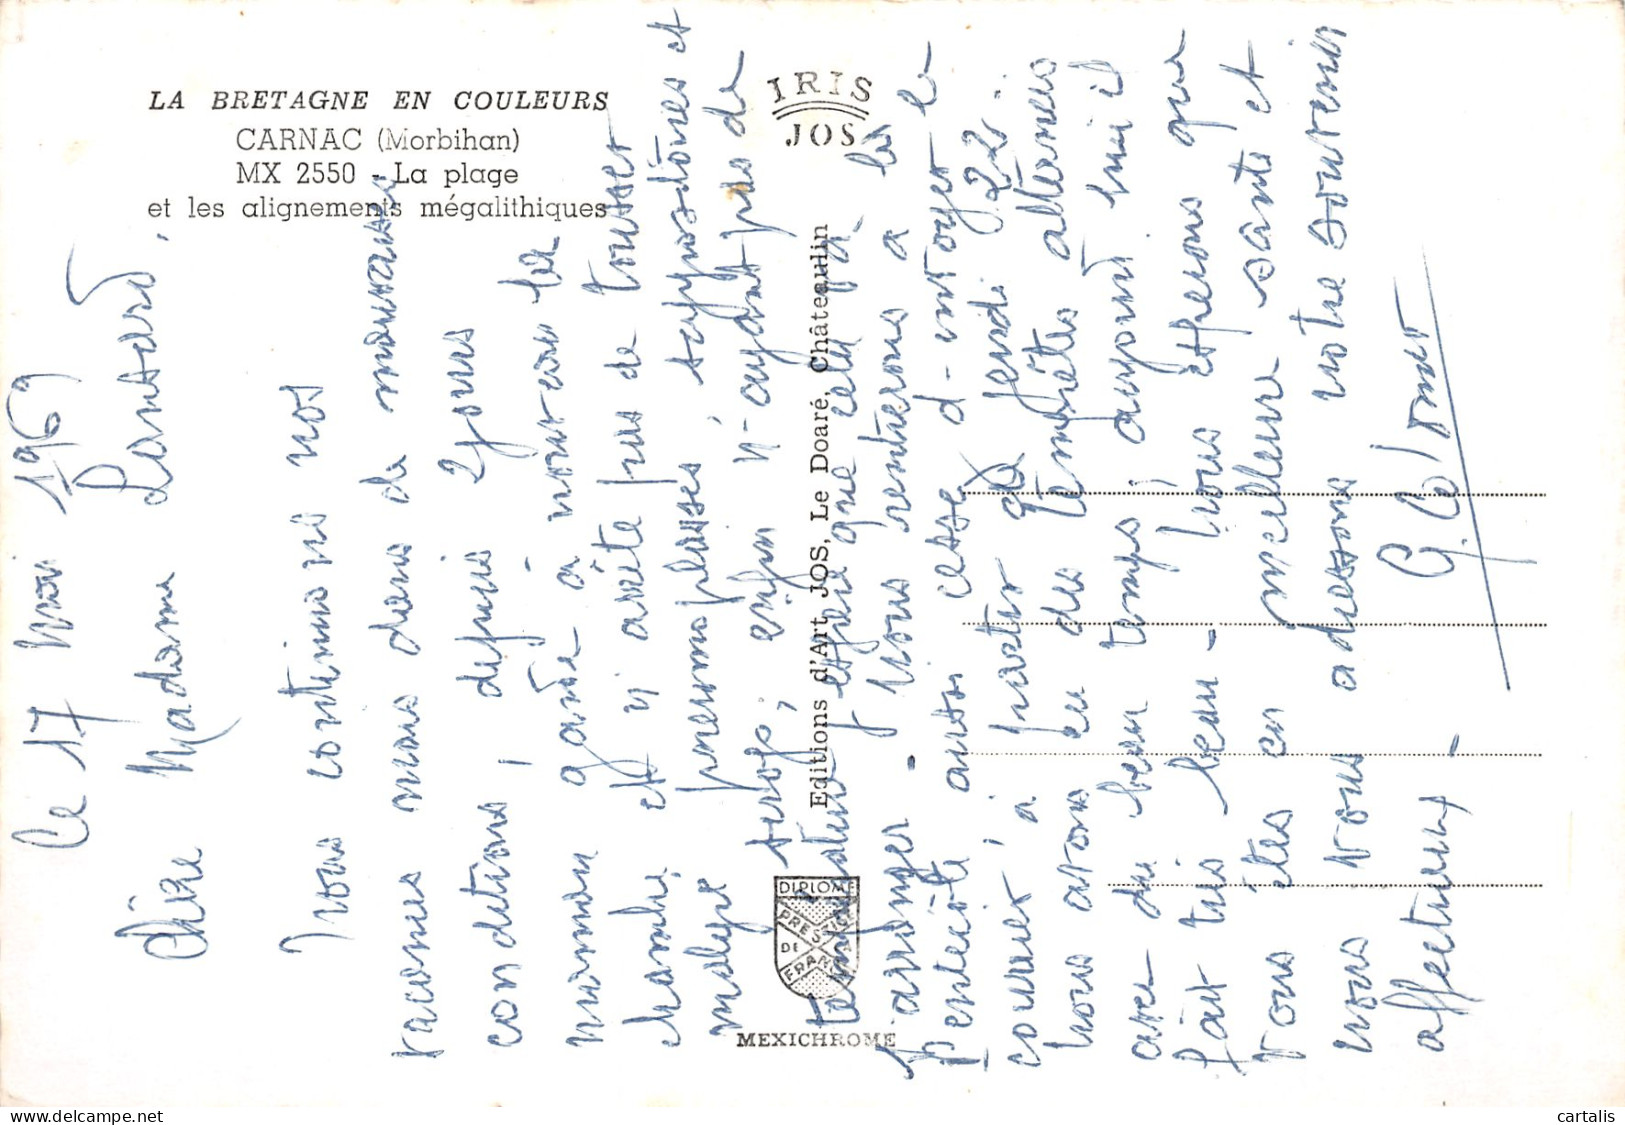 LA BRETAGNE EN COULEURS
CARNAC (Morbihan)
MX 2550 - La plage
et les alignements mégalithiques
IRIS
JOS
Editions d'Art JOS, Le Doaré, Châteaulin
DIPLOME
PRESTIGE
DE
FRANCE
MEXICHROME
Ce 17 Mai 1969
Chère Madame
Nous continuons nos
vacances mais dans de mauvaises
conditions, depuis 2 jours
maman garde à nouveau la
chambre et n'arrête pas de tousser
malgré suppositoires et
sirop, enfin n'ayant pas de
température j'espère que cela va
s'arranger - Nous rentrerons à la
Pentecôte aussi cesse d'envoyer le
courrier à partir du Jeudi 22.
Nous avons eu des tempêtes alternées
avec du beau temps, aujourd'hui il
fait très beau - Nous espérons que
vous êtes en meilleure santé et
nous vous adressons notre souvenir
affectueux -